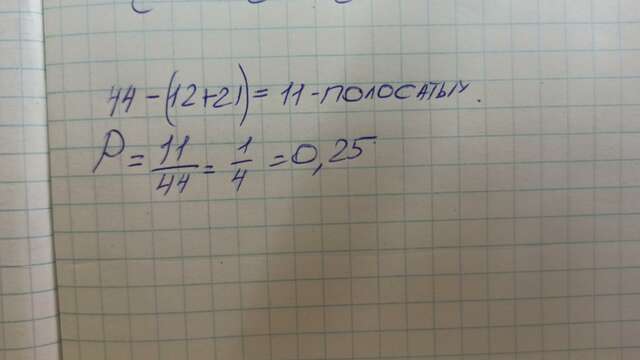 44 - (12+21) = 11 - полосатых.
P = 11/44 = 1/4 = 0,25